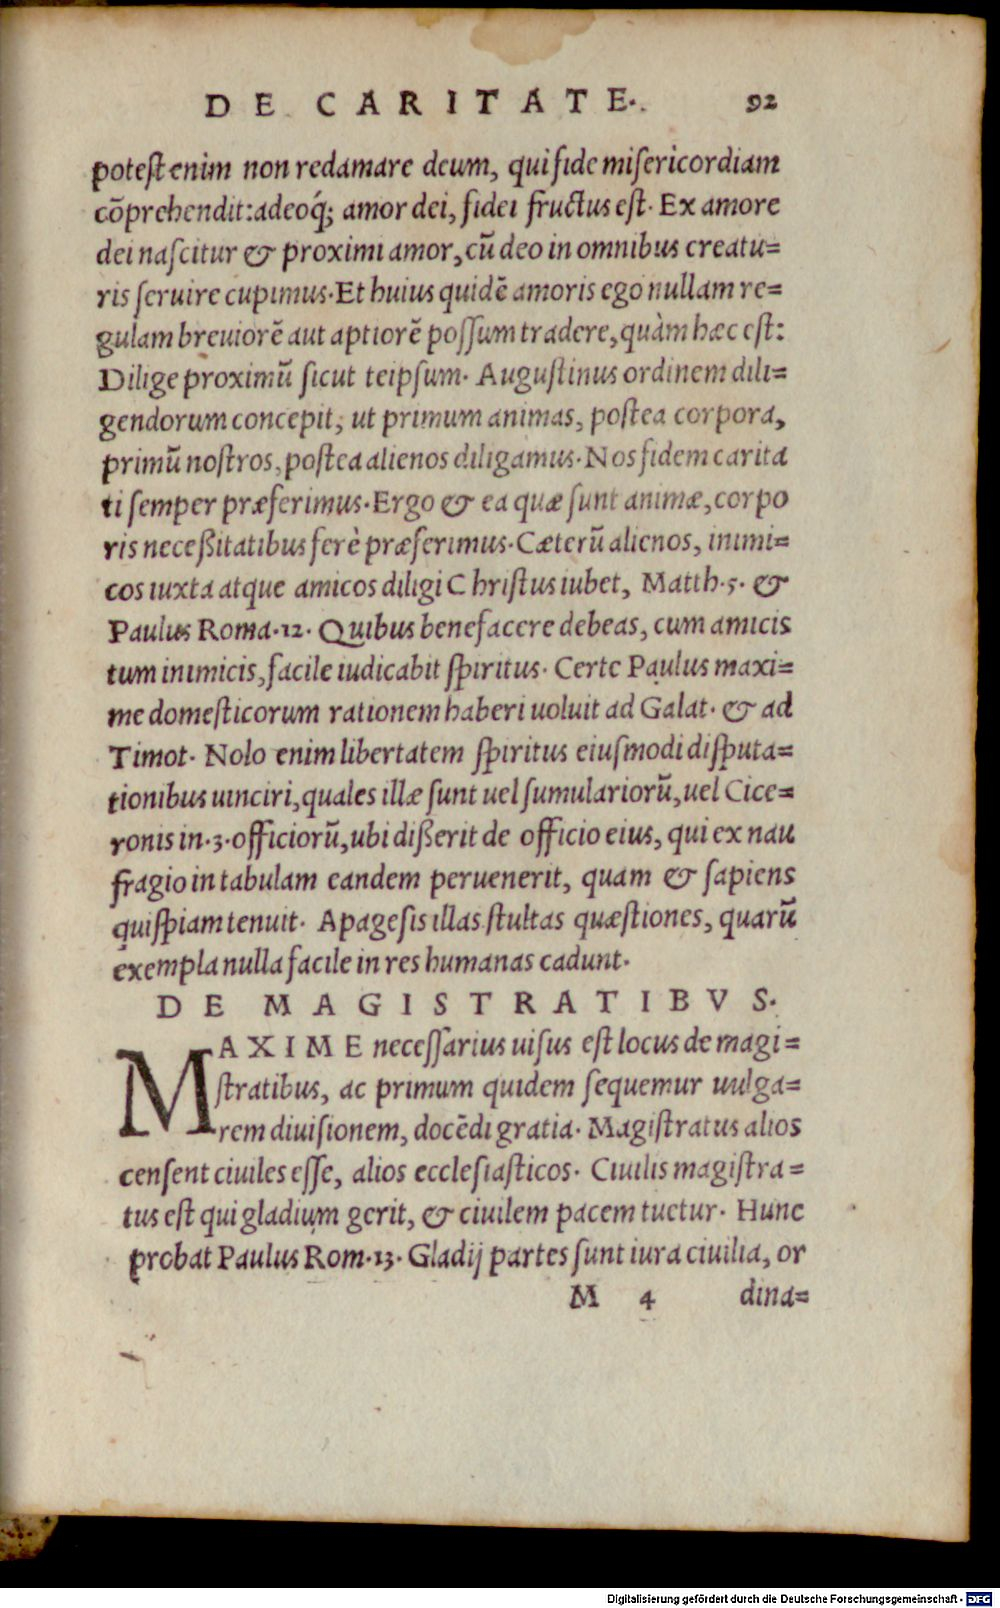 DE CARITATE. 92
poteſt enim non redamare deum, qui fide miſericordiam
cõprehendit: adeoq́; amor dei, fidei fructus eſt. Ex amore
dei naſcitur & proximi amor, cũ deo in omnibus creatu=
ris ſeruire cupimus. Et huius quidẽ amoris ego nullam re=
gulam breuiorẽ aut aptiorẽ poſſum tradere, quàm hæc eſt:
Dilige proximũ ſicut teipſum. Auguſtinus ordinem dili=
gendorum concepit, ut primum animas, poſtea corpora,
primũ noſtros, poſtea alienos diligamus. Nos fidem carita
ti ſemper præferimus. Ergo & ea quæ ſunt animæ, corpo
ris neceßitatibus ferè præferimus. Cæterũ alienos, inimi=
cos iuxta atque amicos diligi Chriſtus iubet, Matth. 5. &
Paulus Roma. 12. Quibus benefacere debeas, cum amicis
tum inimicis, facile iudicabit ſpiritus. Certe Paulus maxi=
me domeſticorum rationem haberi uoluit ad Galat. & ad
Timot. Nolo enim libertatem ſpiritus eiuſmodi diſputa=
tionibus uinciri, quales illæ ſunt uel ſumulariorũ, uel Cice=
ronis in. 3. officiorũ, ubi dißerit de officio eius, qui ex nau
fragio in tabulam eandem peruenerit, quam & ſapiens
quiſpiam tenuit. Apageſis illas ſtultas quæſtiones, quarũ
exempla nulla facile in res humanas cadunt.
DE MAGISTRATIBVS.
MAXIME neceſſarius uiſus eſt locus de magi=
ſtratibus, ac primum quidem ſequemur uulga=
rem diuiſionem, docẽdi gratia. Magiſtratus alios
cenſent ciuiles eſſe, alios eccleſiaſticos. Ciuilis magiſtra=
tus eſt qui gladium gerit, & ciuilem pacem tuetur. Hunc
probat Paulus Rom. 13. Gladij partes ſunt iura ciuilia, or
M 4 dina=
Digitalisierung gefördert durch die Deutsche Forschungsgemeinschaft - DFG